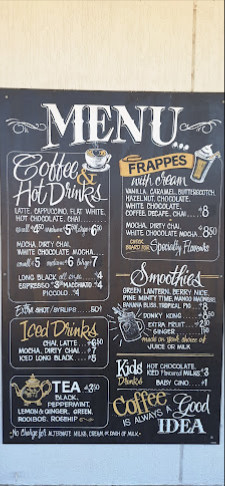 MENU...
Coffee
&
Hot Drinks
LATTE, CAPPUCCINO, FLAT WHITE,
HOT CHOCOLATE, CHAI
small $4.50 medium $5.50 large 6.50
MOCHA, DIRTY CHAI
WHITE CHOCOLATE MOCHA
small $5 medium $6 large 7
LONG BLACK all sizes $4
ESPRESSO $3 MACCHIATO $4
PICCOLO $4
EXTRA SHOT/SYRUPS 50¢
Iced Drinks
CHAI, LATTE $6.50
MOCHA, DIRTY CHAI $7
ICED LONG BLACK $8
TEA $3.50
BLACK,
PEPPERMINT,
LEMON & GINGER, GREEN,
ROOIBOS, ROSEHIP
FRAPPES
with cream
VANILLA, CARAMEL, BUTTERSCOTCH,
HAZELNUT, CHOCOLATE,
WHITE CHOCOLATE,
COFFEE, DECAFE, CHAI $8
MOCHA, DIRTY CHAI
WHITE CHOCOLATE MOCHA $8.50
CHECK
BOARD FOR Specialty Flavours
Smoothies
GREEN LANTERN, BERRY NICE,
PINE MINTY TIME, MANGO
BLISS, TROPICAL $8
DONKY KONG $8.50
EXTRA FRUIT $2
GINGER 50
made on your choice of
JUICE OR MILK
Kids
Drinks
HOT CHOCOLATE,
ICED Flavoured MILKS $3
BABY CINO $1
Coffee
IS ALWAYS A
Good
IDEA
~No Charge for ALTERNATE MILKS, CREAM OR DASH OF MILK~